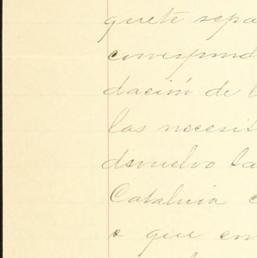 quete sepa
correspond
dación de l
las necesit
devuelvo la
Cataluña c
o que en